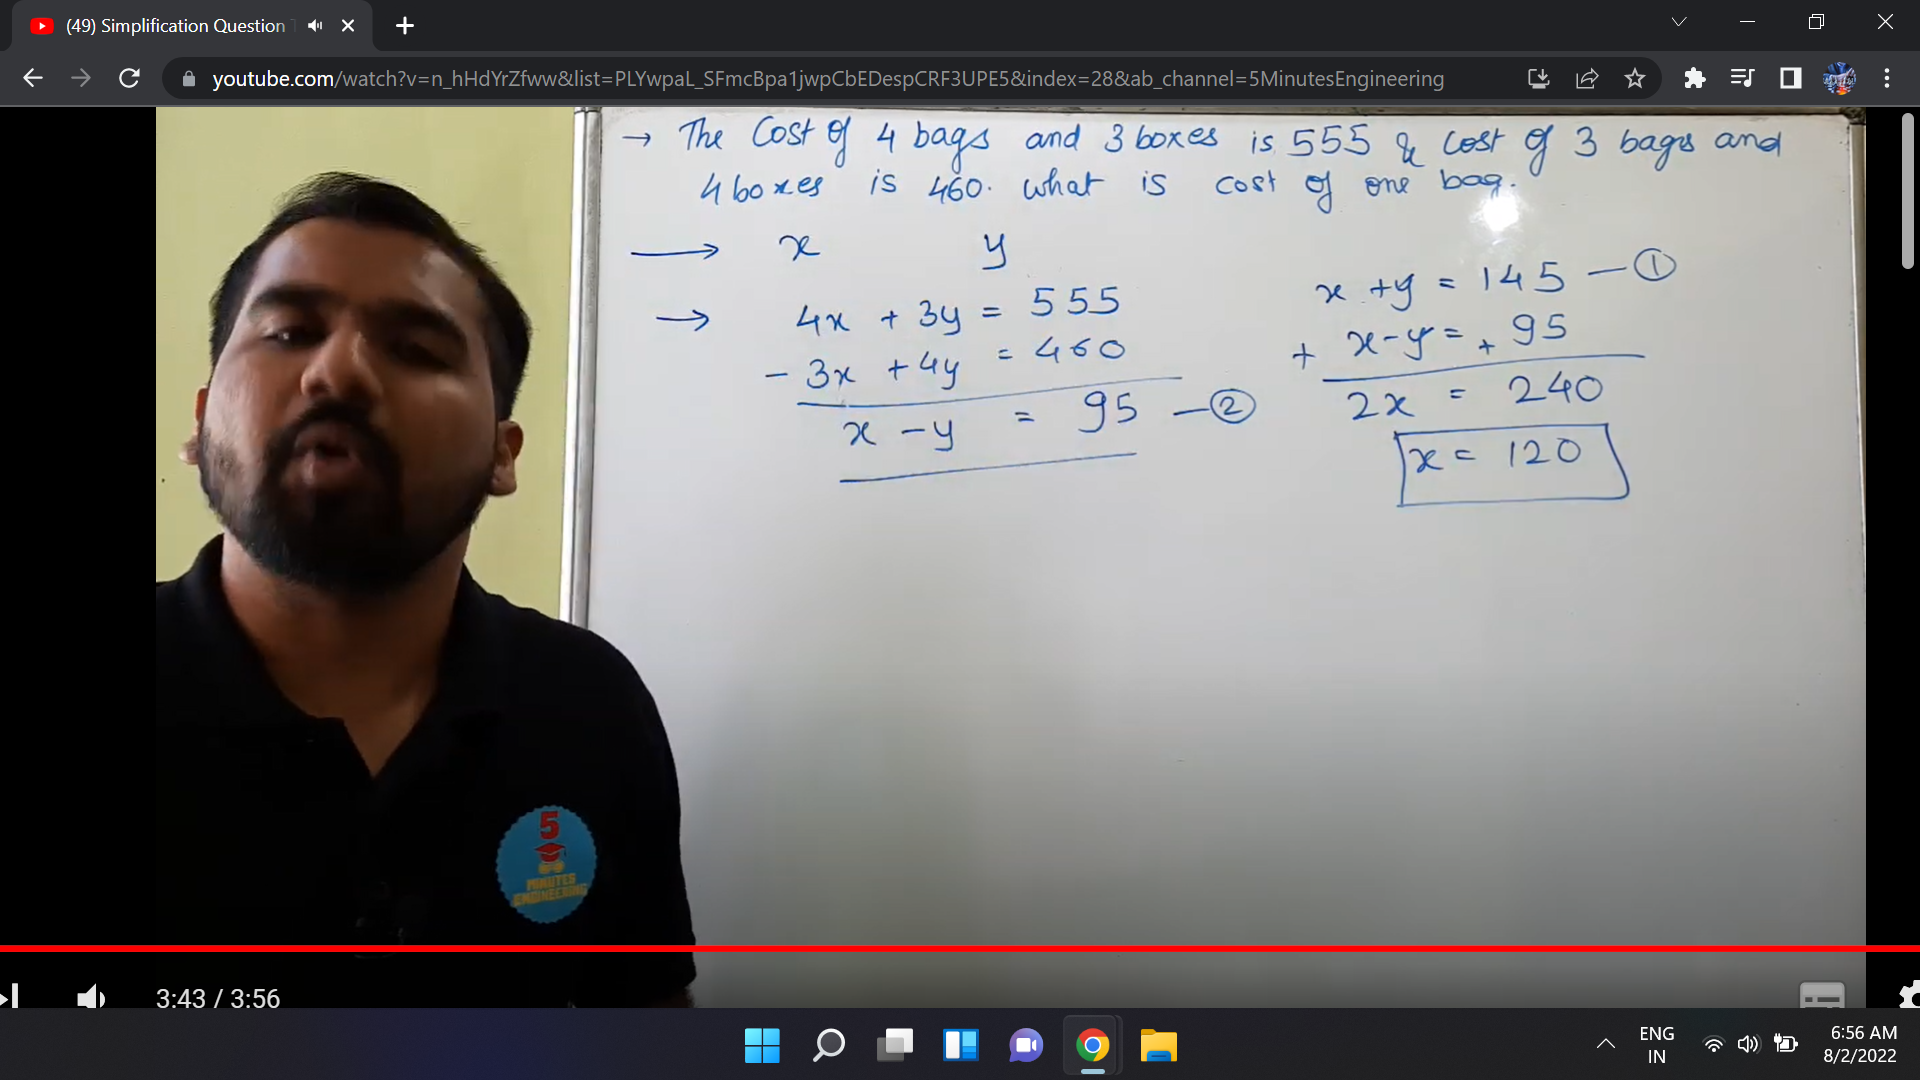 (49) Simplification Question
youtube.com/watch?v=n_hHdYrZfww&list=PLYwpaL_SFmcBpa1jwpCbEDespCRF3UPE5&index=28&ab_channel=5MinutesEngineering
→ The Cost of 4 bags and 3 boxes is 555 & cost of 3 bags and
4 boxes is 460. what is cost of one bag.
→ x y
→ 4x + 3y = 555
- 3x + 4y = 460
x - y = 95 — ②
x + y = 145 — ①
+ x - y = + 95
2x = 240
x = 120
5
MINUTES
ENGINEERING
3:43 / 3:56
ENG
IN
6:56 AM
8/2/2022